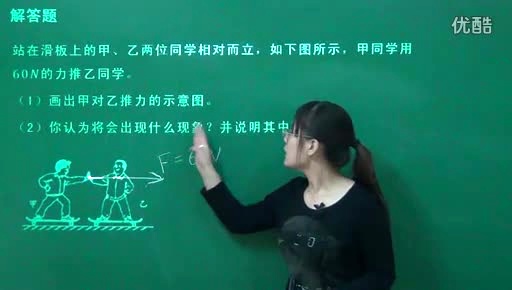 解答题
优酷
站在滑板上的甲、乙两位同学相对而立,如下图所示,甲同学用
60N的力推乙同学。
(1)画出甲对乙推力的示意图。
(2)你认为将会出现什么现象?并说明其中
F=60N
甲
乙